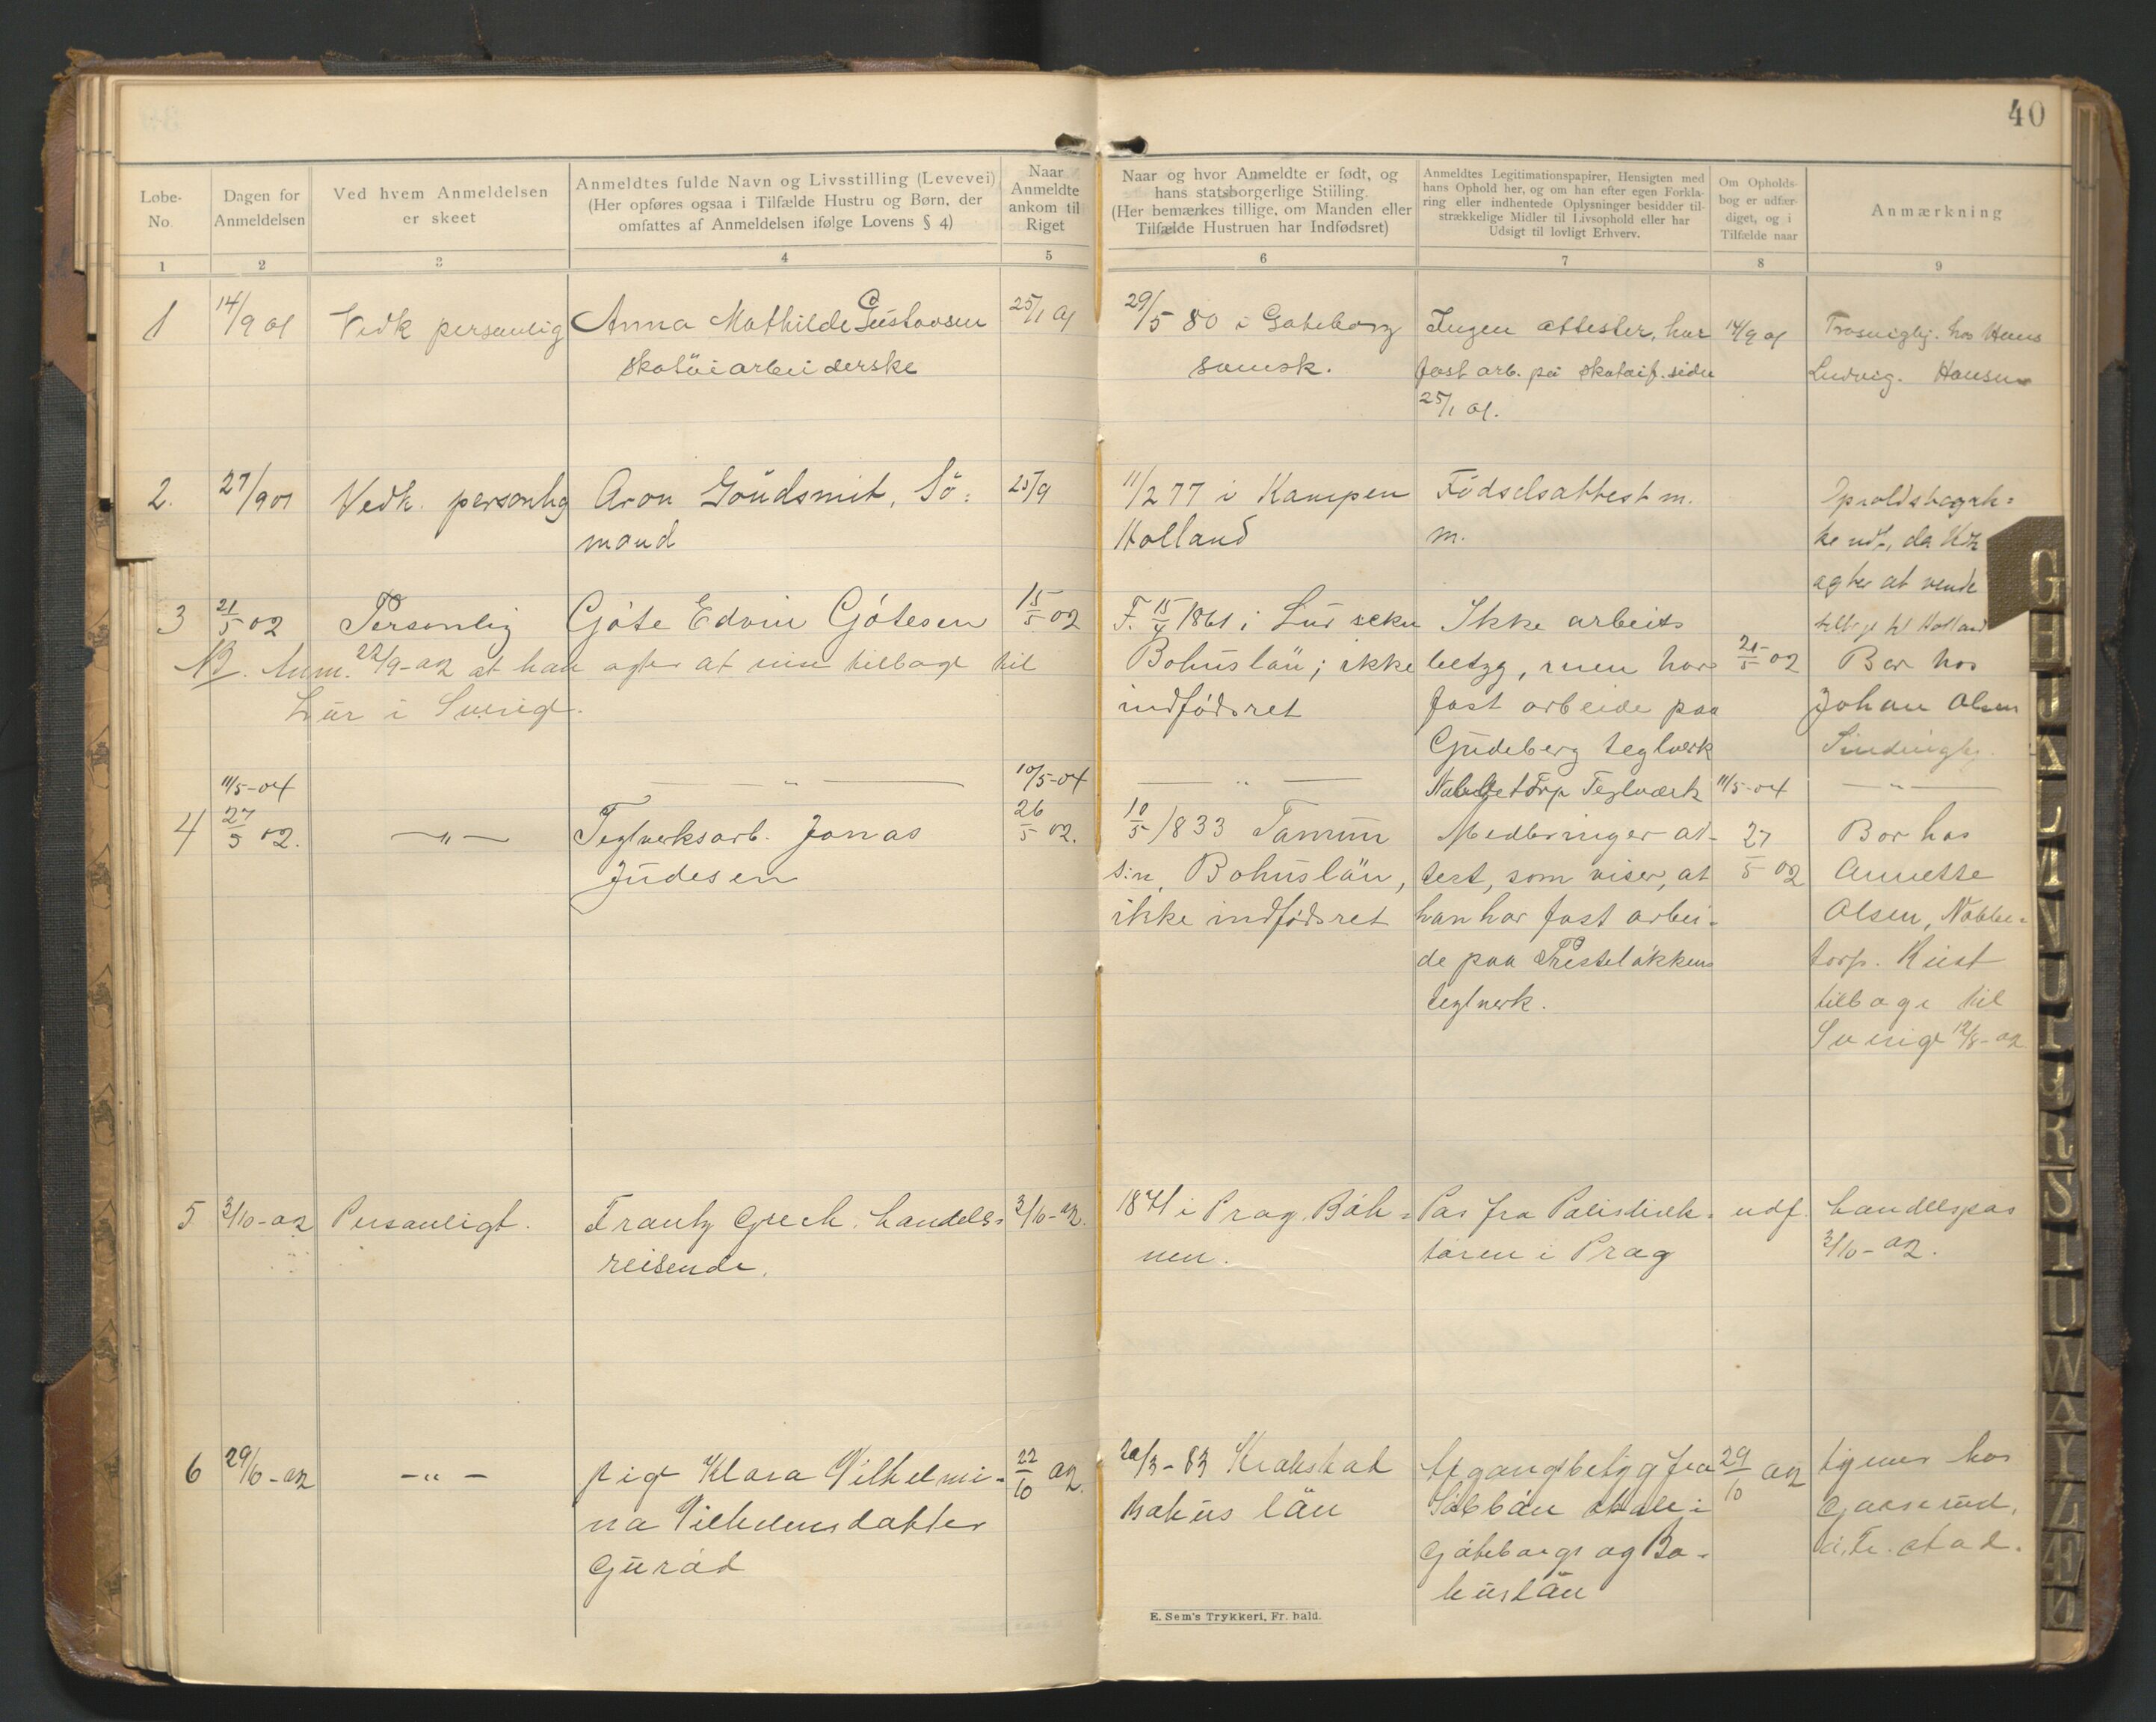 40
Løbe-
No.
Dagen for
Anmeldelsen
Ved hvem Anmeldelsen
er skeet
Anmeldtes fulde Navn og Livsstilling (Levevei)
(Her opføres ogsaa i Tilfælde Hustru og Børn, der
omfattes af Anmeldelsen ifølge Lovens § 4)
Naar
Anmeldte
ankom til
Riget
Naar og hvor Anmeldte er født, og
hans statsborgerlige Stilling.
(Her bemærkes tillige, om Manden eller
Tilfælde Hustruen har Indfødsret)
Anmeldtes Legitimationspapirer, Hensigten med
hans Ophold her, og om han efter egen Forkla-
ring eller indhentede Oplysninger besidder til-
strækkelige Midler til Livsophold eller har
Udsigt til lovligt Erhverv.
Om Opholds-
bog er udfær-
diget, og i
Tilfælde naar
Anmærkning
1 2 3 4 5 6 7 8 9
1
14/9 01
Vedk personlig
Anna Mathilde Gustavsen
skotöiarbeiderske
25/1 01
29/5 80 i Gøteborg
svensk.
Ingen attester, har
fast arb. på skotøif. siden
25/1 01.
14/9 01
Trosvigbg. hos Hans
Ludvig. Hansen
2.
27/9 01
Vedk. personlig
Aron Goudsmit, Sö-
mand
25/9
11/2 77 i Kampen
Holland
Födselsattest m.
m.
ke udf., da Vedk
agter at vende
tilbage til Holland
3
21/5 02
Personlig
Göte Edvin Götesen
15/5 02
NB. Anm. 22/9-02 at han agter at reise tilbage til
Lur i Sverige.
F. 15/4 1861 i Lur sokn
Bohuslän; ikke
indfödsret
Ikke arbeids
betyg, men har
fast arbeide paa
Gudeberg teglverk
21/5-02
Bor hos
Johan Olsen
11/5-04
— " —
10/5-04
— " —
Nabbetorp Teglværk
11/5-04
— " —
4
27/5 02.
— " —
Teglverksarb. Jonas
Judesen
26/5 02.
10/5 1833 Tanum
s:n, Bohuslän,
ikke indfödsret
Medbringer at-
test, som viser, at
han har fast arbei-
de paa Presteløkkens
teglverk.
27/5 02
Bor hos
Annette
Olsen, Nabbe-
torp. Reist
tilbage til
Sverige 12/8-02
5
3/10-02
Personligt.
Frantz Grech, handels-
reisende.
3/10-02.
1871 i Prag. Böh-
men.
Pas fra Polisdirek-
tøren i Prag
udf.
handelspas
3/10-02.
6
29/10-02
— " —
pige Klara Vilhelmi-
na Vilhelmsdatter
Guröd
22/10 02.
20/3-83 Krokstad
Bohus län
fra
skole i
Göteborgs og Bo-
huslän
29/10 02
tjener hos
Gaaserud,
Fr. stad.
E. Sem's Trykkeri, Fr. hald.
G
H
I
J
K
L
M
N
O
P
Q
R
S
T
U
W
X
Y
Z
Æ
Ø